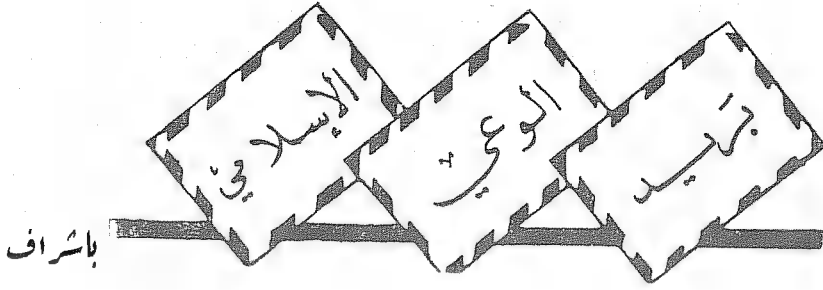 بريد الوعي الإسلامي
باشراف